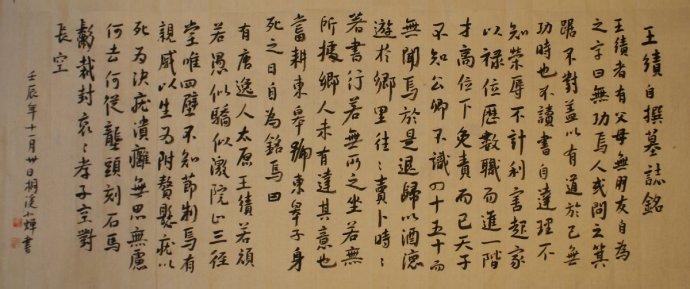 王績自撰墓誌銘
王績者有父母無朋友自為
之字曰無功焉人或問之箕
踞不對蓋以有道於己無
功時也不讀書自達理不
知榮辱不計利害起家
以祿位歷數職而進一階
才高位下免責而已天子
不知公卿不識四十五十而
無聞焉於是退歸以酒德
遊於鄉里往〻賣卜時〻
著書行若無所之坐若無
所據鄉人未有達其意也
嘗耕東皋號東皋子身
死之日自為銘焉曰
有唐逸人太原王績若頑
若愚似驕似激院止三徑
堂唯四壁不知節制焉有
親戚以生為附贅懸疣以
死為決疣潰癰無思無慮
何去何從壟頭刻石馬
鬣裁封哀〻孝子空對
長空
壬辰年十一月廿日桐溪小婢書